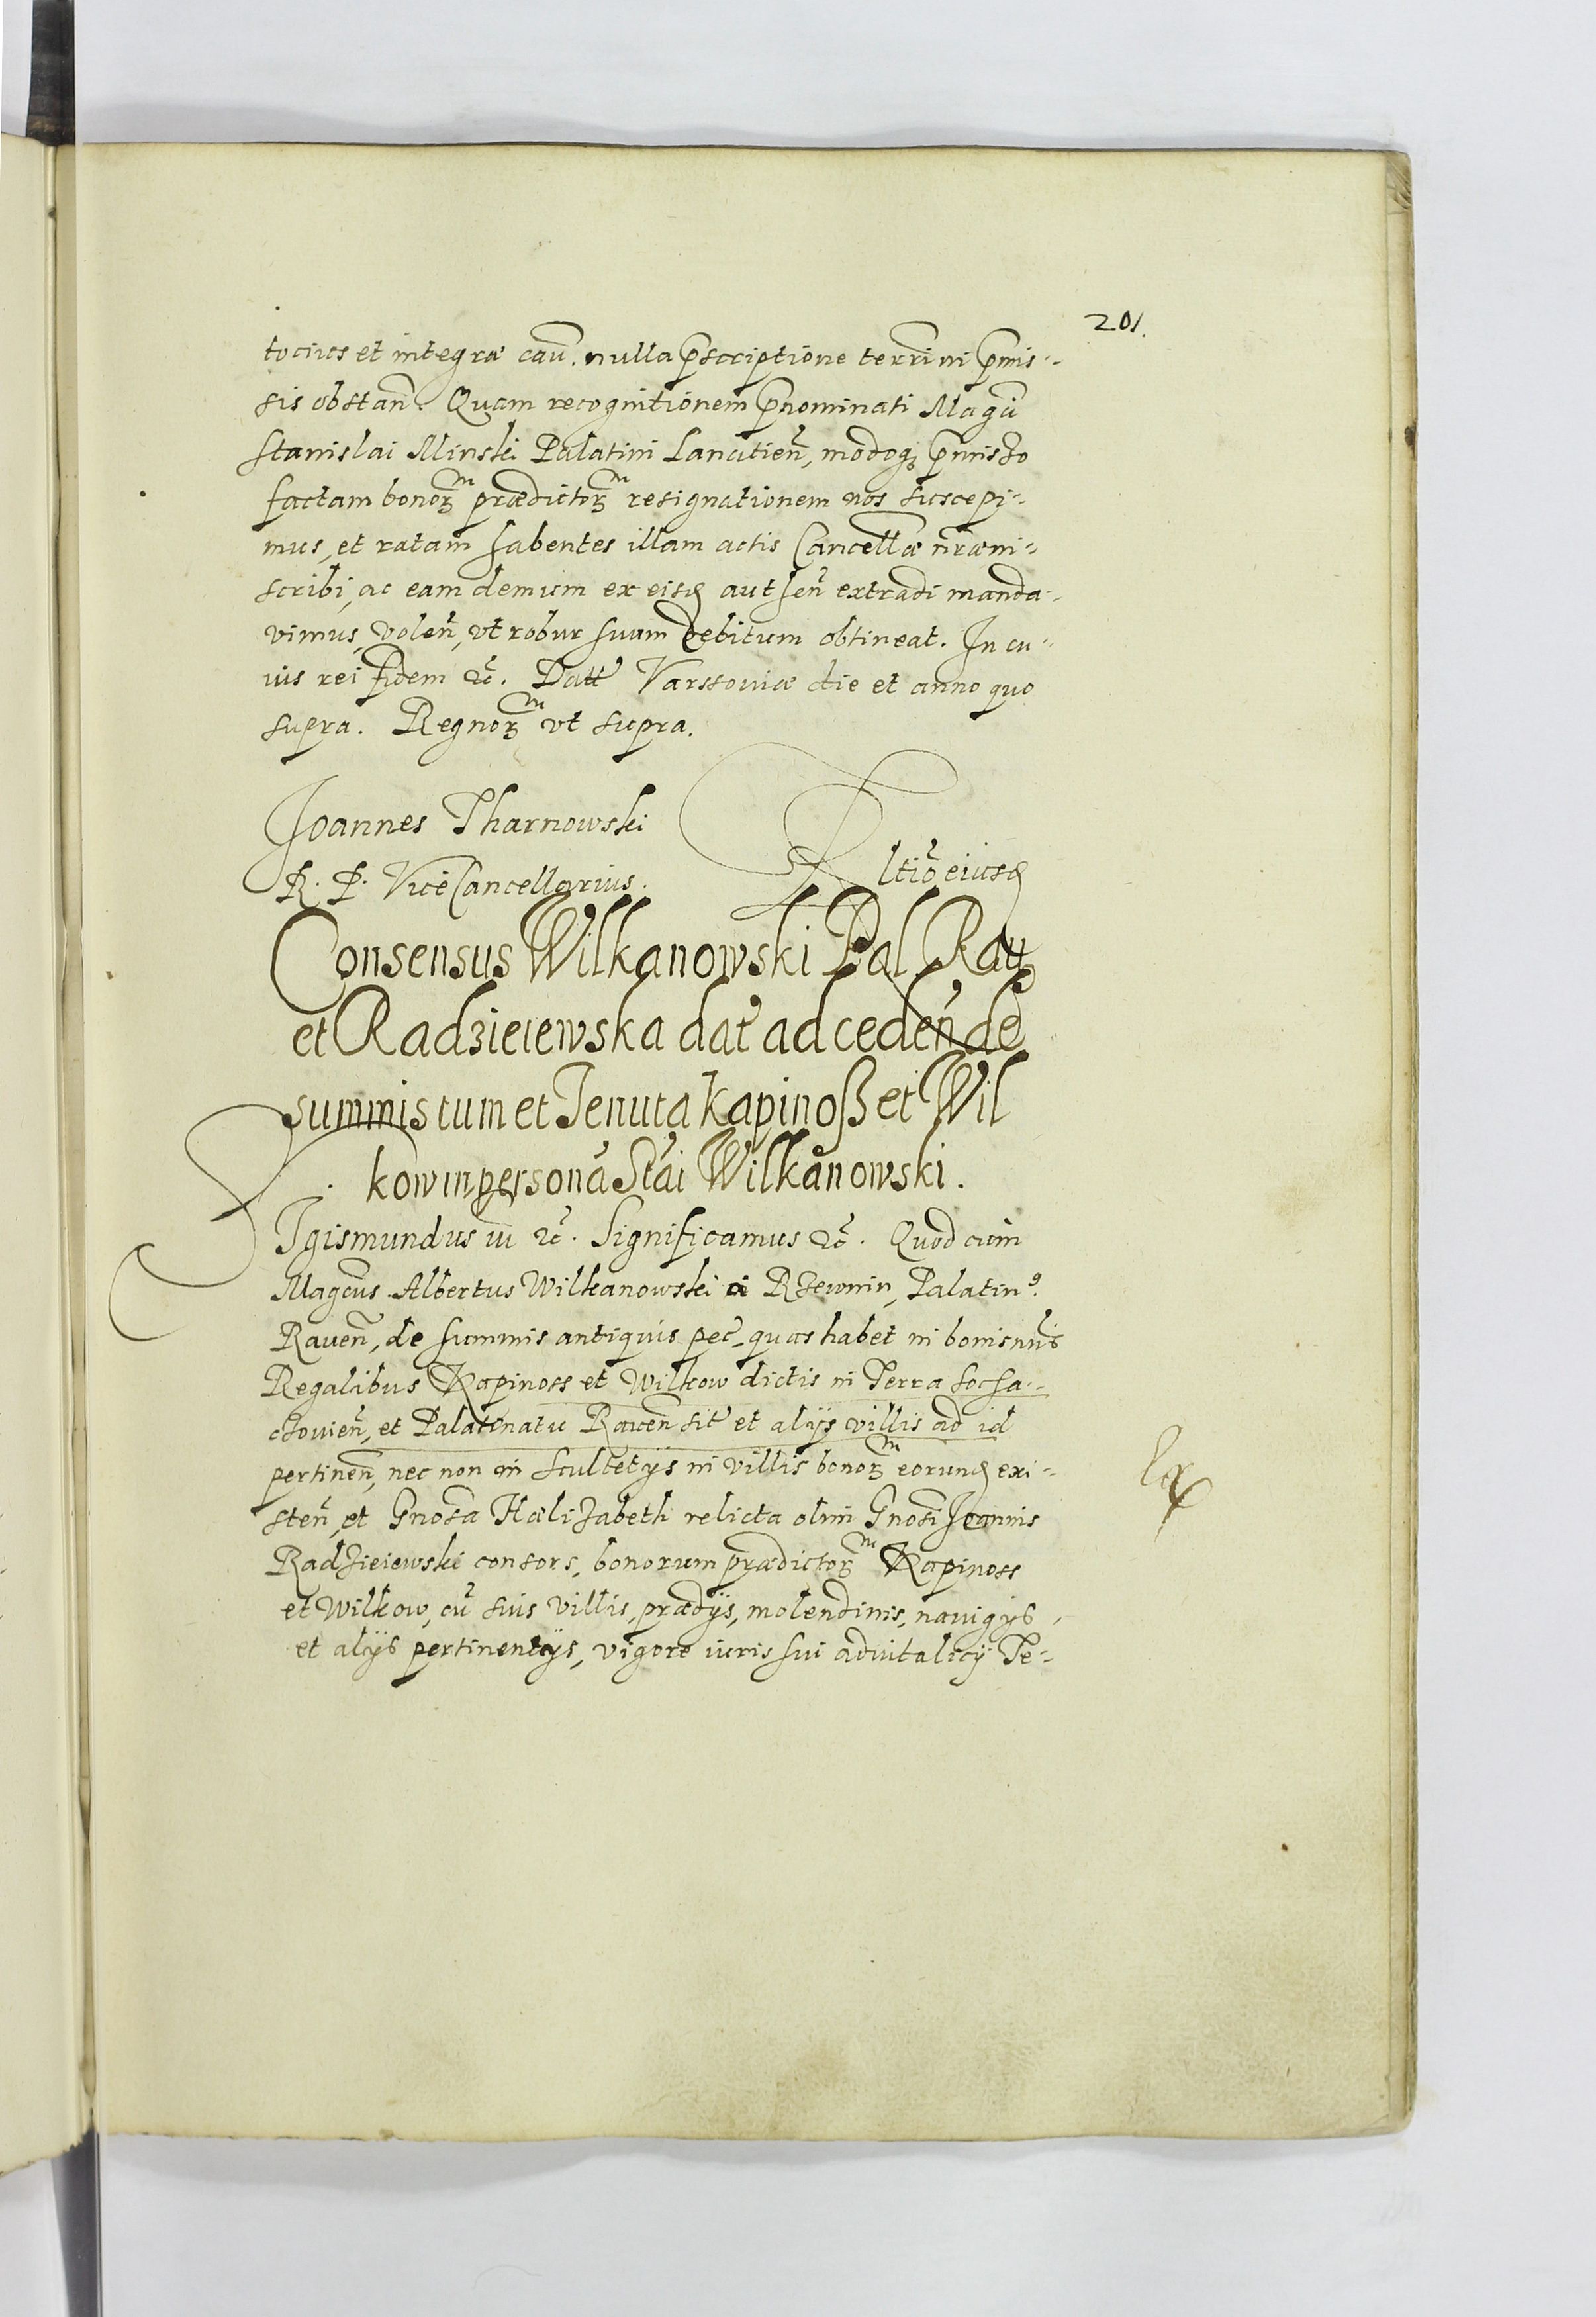 201.
tocius et integræ cau͂. nulla p͂scriptione termini p͂mis-
sis obstan͂. Quam recognitionem p͂nominati Magci
Stanislai Minski Palatini Lancitien͂, modoq; p͂misso
factam bonor͂m prædictor͂m resignationem nos suscepi-
mus, et ratam habentes illam actis Cancellæ n͂ræ in-
scribi, ac eam demum ex eisd autheñ extradi manda-
vimus, volen͂, vt robur suum debitum obtineat. In cu-
ius rei fidem &c. Datt Varssouiæ die et anno quo
supra. Regnor͂m vt supra.
Joannes Tharnowski
R. P. ViceCancellarius.
R͂ltio eiusd
Consensus Wilkanowski Pal Rau
et Radzieiewska dat ad ceden͂ de
summis tum et Tenuta Kapinoß et Wil
kow in persona͂ Sta͂i Wilkanowski.
SIgismundus iii &c. Significamus &c. Quod cum
Magcus Albertus Wilkanowski a Rzewnin, Palatin9
Rauen͂, de summis antiquis pec͂. quas habet in bonis n͂ris
Regalibus Kapinoss et Wilkow dictis in Terra Socha-
czouien͂, et Palatinatu Rauen͂ sit et alijs villis ad id
pertinen͂, nec non in Scultetijs in villis bonor͂m eorund exi-
sten͂, et Gnosa Hælizabeth relicta olim Gnosi Joannis
Radzieiewski consors, bonorum prædictor͂m Kapinoss
et Wilkow, cu͂ suis villis, prædijs, molendinis, nauigijs
et alijs pertinentijs, vigore iuris sui aduitalicij Te-